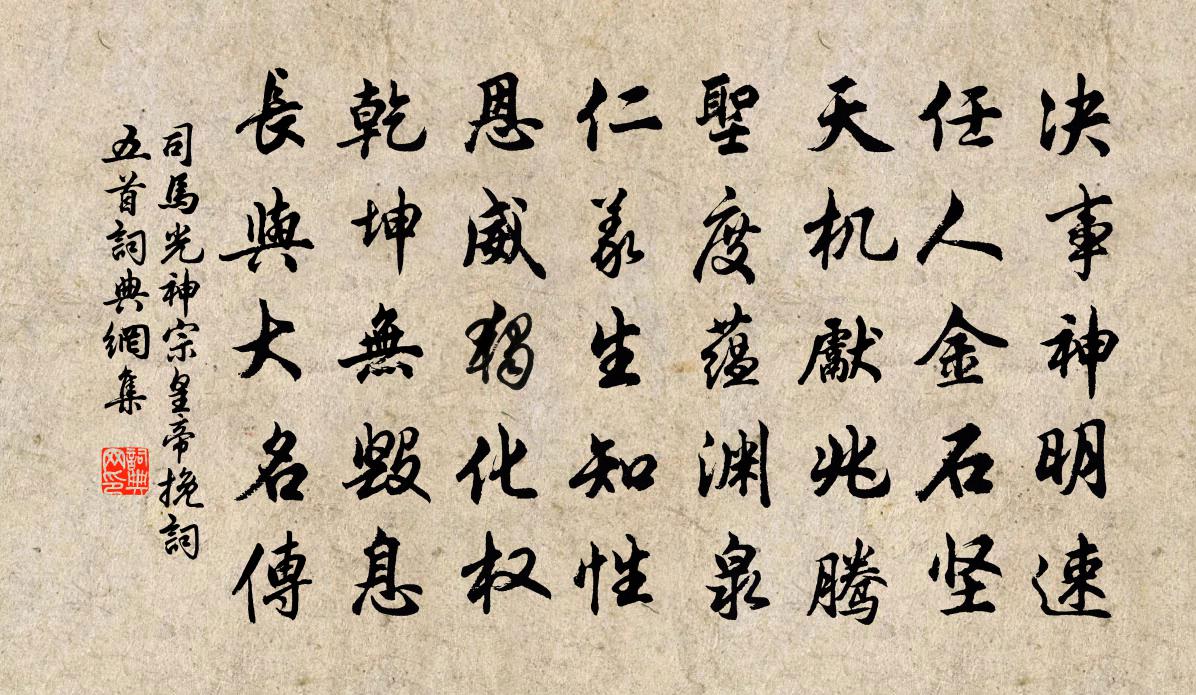 决事神明速
任人金石坚
天机獻兆騰
聖度薀渊泉
仁義生知性
恩威獨化权
乾坤無毀息
長與大名傳
司馬光神宗皇帝挽詞
五首詞典網集
詞典网印